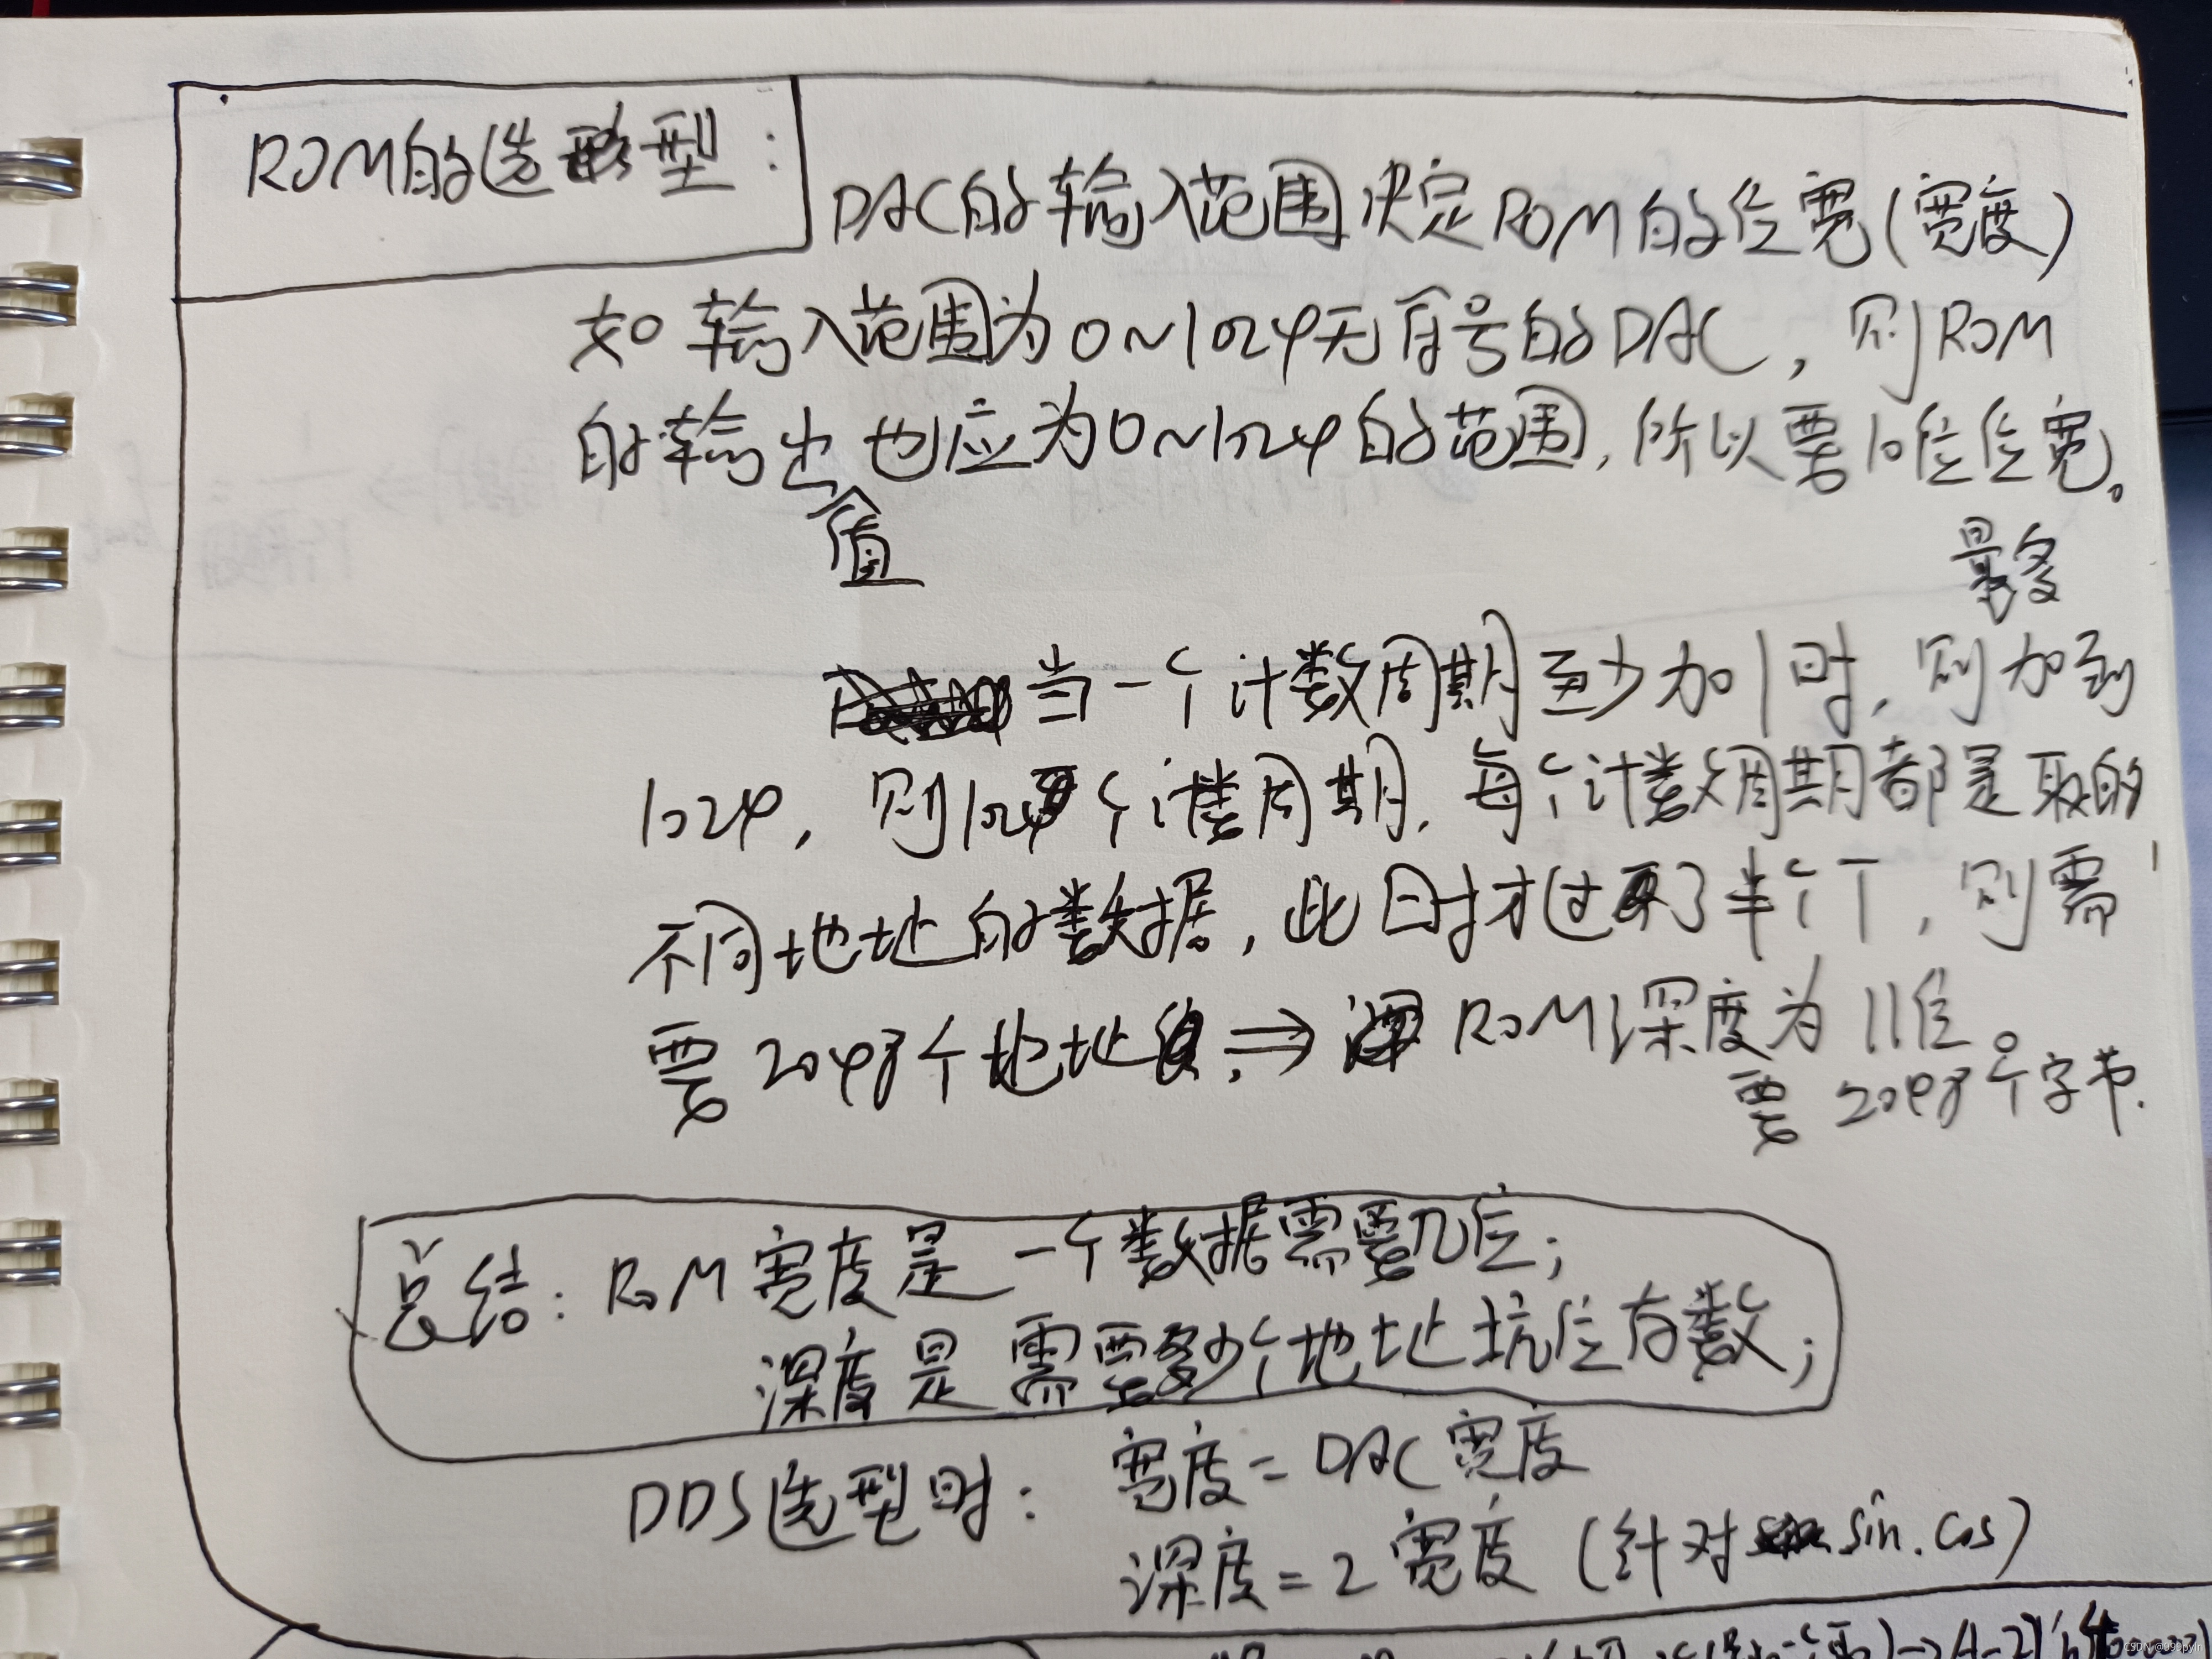 ROM的选型:
DAC的输入范围决定ROM的位宽(宽度)
如输入范围为0~1024无符号的DAC,则ROM
的输出值也应为0~1024的范围,所以要10位位宽。
最多
当一个计数周期至少加1时,则加到
1024,则1024个计数周期,每个计数周期都是取的
不同地址的数据,此时才过了半个T,则需
要2048个地址.⇒ROM深度为11位。
要2048个字节.
总结:ROM宽度是一个数据需要几位;
深度是需要多少个地址坑位存数;
DDS选型时:宽度=DAC宽度
深度=2宽度(针对sin.cos)
CSDN @999byln